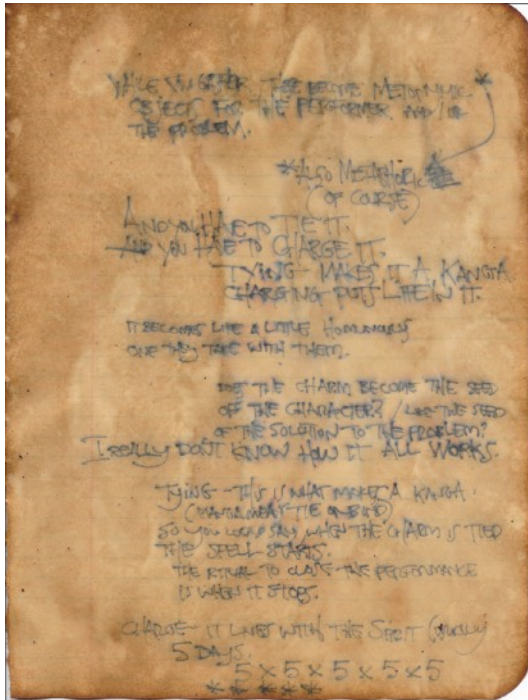 THE BECOME METONYMIC *
OBJECTS FOR THE PERFORMER AND/OR
THE PROBLEM.
*ALSO METAPHORIC
(OF COURSE)
AND YOU HAVE TO TIE IT.
AND YOU HAVE TO CHARGE IT.
TYING MAKES IT A KANGA.
CHARGING PUTS LIFE IN IT.
IT BECOMES LIKE A LITTLE HOMUNCULUS
ONE THEY TAKE WITH THEM.
DOES THE CHARM BECOME THE SEED
OF THE CHARACTER? / LIKE THE SEED
OF THE SOLUTION TO THE PROBLEM?
I REALLY DON'T KNOW HOW IT ALL WORKS.
TYING - THIS IS WHAT MAKES A KANGA.
TIE OR BIND)
SO YOU COULD SAY WHEN THE CHARM IS TIED
THE SPELL STARTS.
THE RITUAL TO CLOSE THE PERFORMANCE
IS WHEN IT STOPS.
CHARGE - IT LIVES WITH THE SPIRIT (USUALLY
5 DAYS.
5 x 5 x 5 x 5 x 5
* * * * *